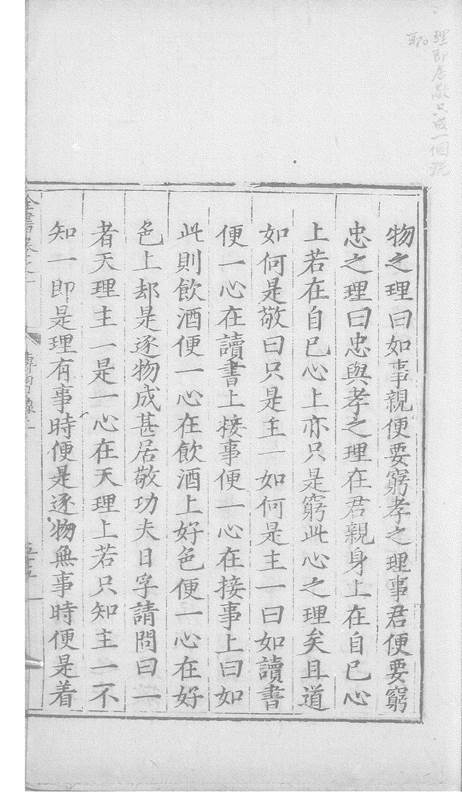 理即居敬只是一個
物之理曰如事親便要窮孝之理事君便要窮
忠之理曰忠與孝之理在君親身上在自己心
上若在自己心上亦只是窮此心之理矣且道
如何是敬曰只是主一如何是主一曰如讀書
便一心在讀書上接事便一心在接事上曰如
此則飲酒便一心在飲酒上好色便一心在好
色上却是逐物成甚居敬功夫日孚請問曰一
者天理主一是一心在天理上若只知主一不
知一即是理有事時便是逐物無事時便是着
全書卷之一
傳習錄上